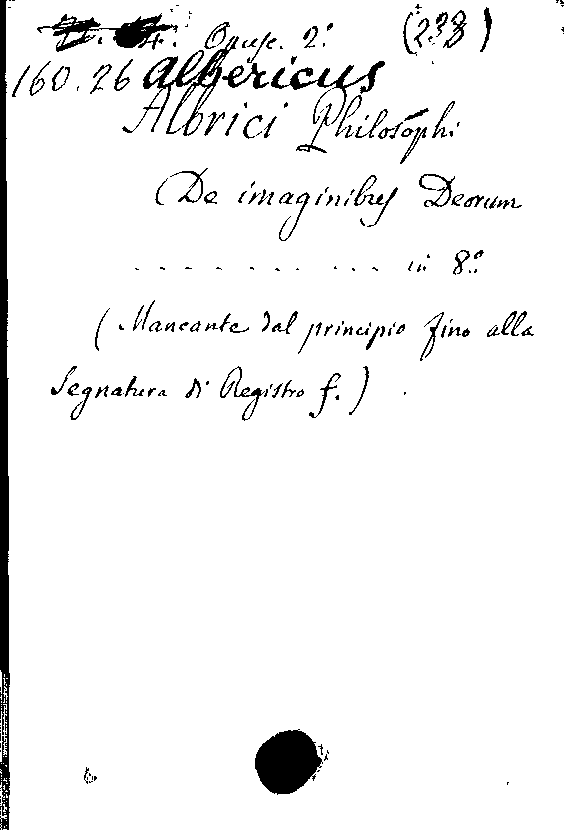 Opusc. 2º (238)
160.26 Albericus
Albrici Philosophi
De imaginibus Deorum
. . . . . . . . . . . in 8º
(Mancante dal principio fino alla
Segnatura di Registro f.)
6